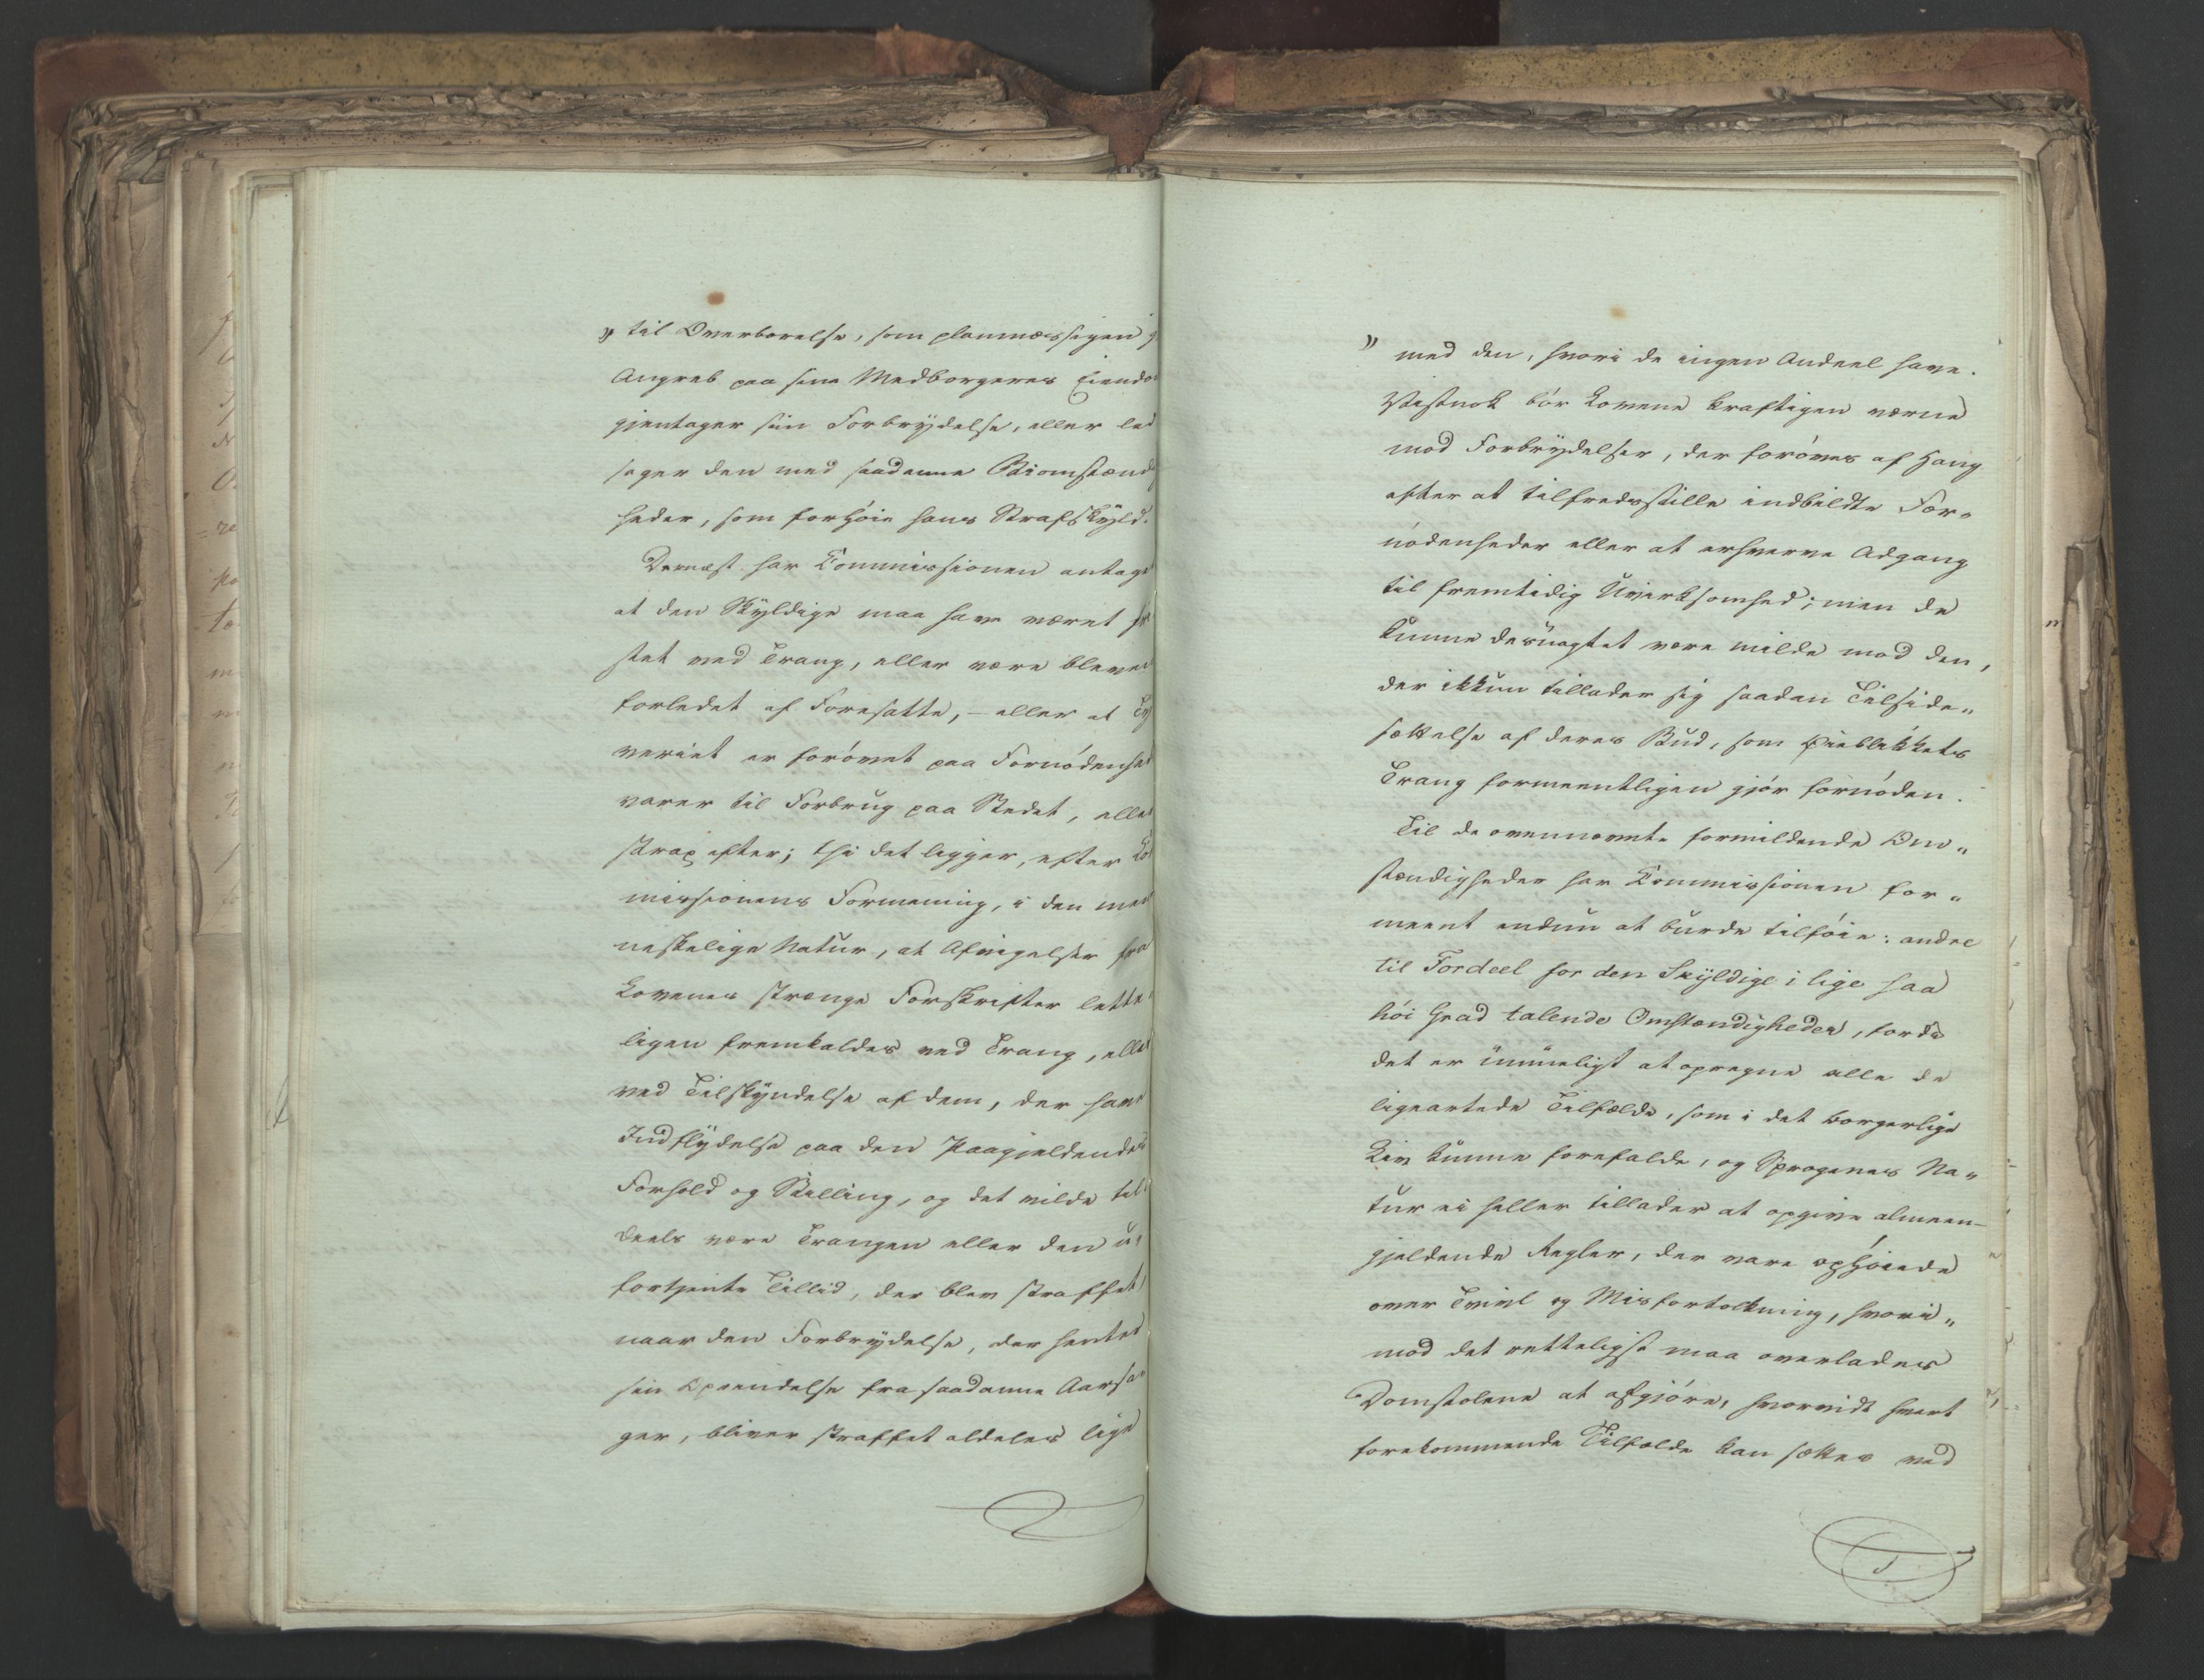 " til Overbærelse, som planmæssigen
Angreb paa sine Medborgeres Eiendo
gjentager sin Forbrydelse, eller led
sager den med saadanne Biomstænd
heder, som forhöie hans Strafskyld.
Dernæst har Commissionen antaget
at den Skyldige maa have været fri
stet ved Trang, eller være bleven
forledet af Foresatte, - eller at Ty
veriet er forövet paa Fornödenhed
varer til Forbrug paa Stedet, eller
strax efter; thi det ligger, efter Co
missionens Formening, i den men
neskelige Natur, at Afvigelser fra
Lovenes strænge Forskrifter lette
ligen fremkaldes ved Trang, eller
ved Tilskyndelse af dem, der have
Indflydelse paa den Paagjeldendes
Forhold og Stilling, og det vilde til
deels være Trangen eller den u
fortjente Tillid, der blev straffet,
naar den Forbrydelse, der henter
sin Oprindelse fra saadanne Aarsa
ger, bliver straffet aldeles lige
" med den, hvori de ingen Andeel have.
Vistnok bör Lovene kraftigen værne
mod Forbrydelser, der foröves af Hang
efter at tilfredsstille indbildte For„
nödenheder eller at erhverve Adgang
til fremtidig Uvirksomhed; men de
kunne desuagtet være milde mod den,
der ikkun tillader sig saadan Tilside„
sættelse af deres Bud, som Öieblikkets
Trang formeentligen gjör fornöden.
Til de ovennævnte formildende Om„
stændigheder har Commissionen for„
meent endnu at burde tilföie: andre
til Fordeel for den Skyldige i lige saa
höi Grad talende Omstændigheder, fordi
det er umueligt at opregne alle de
ligeartede Tilfælde, som i det borgerlige
Liv kunne forefalde, og Sprogenes Na„
tur ei heller tillader at opgive almeen-
gjeldende Regler, der vare ophöiede
over Tvivl og Misfortolkning, hvori„
mod det retteligst maa overlades
Domstolene at afgjöre, hvorvidt hvert
forekommende Tilfælde kan sættes ved